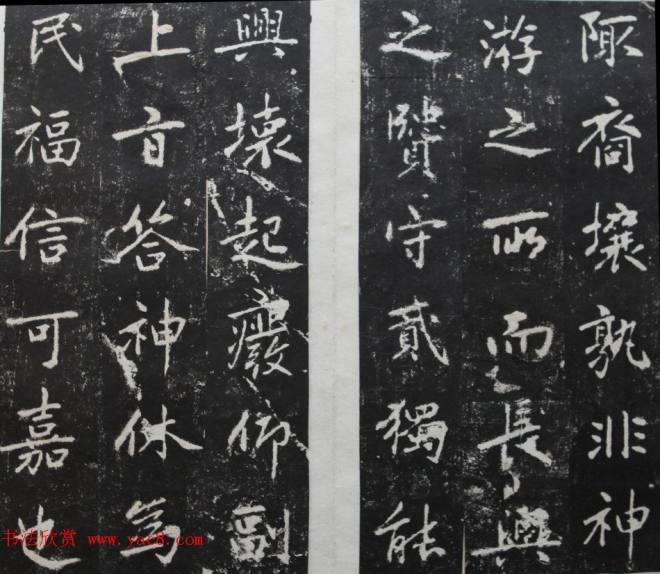 陬裔壤孰非神
游之所而之長興
之賢守貳獨能
興壞起癈仰副
上旨答神休為
民福信可嘉也
书法欣赏 www.yac8.com